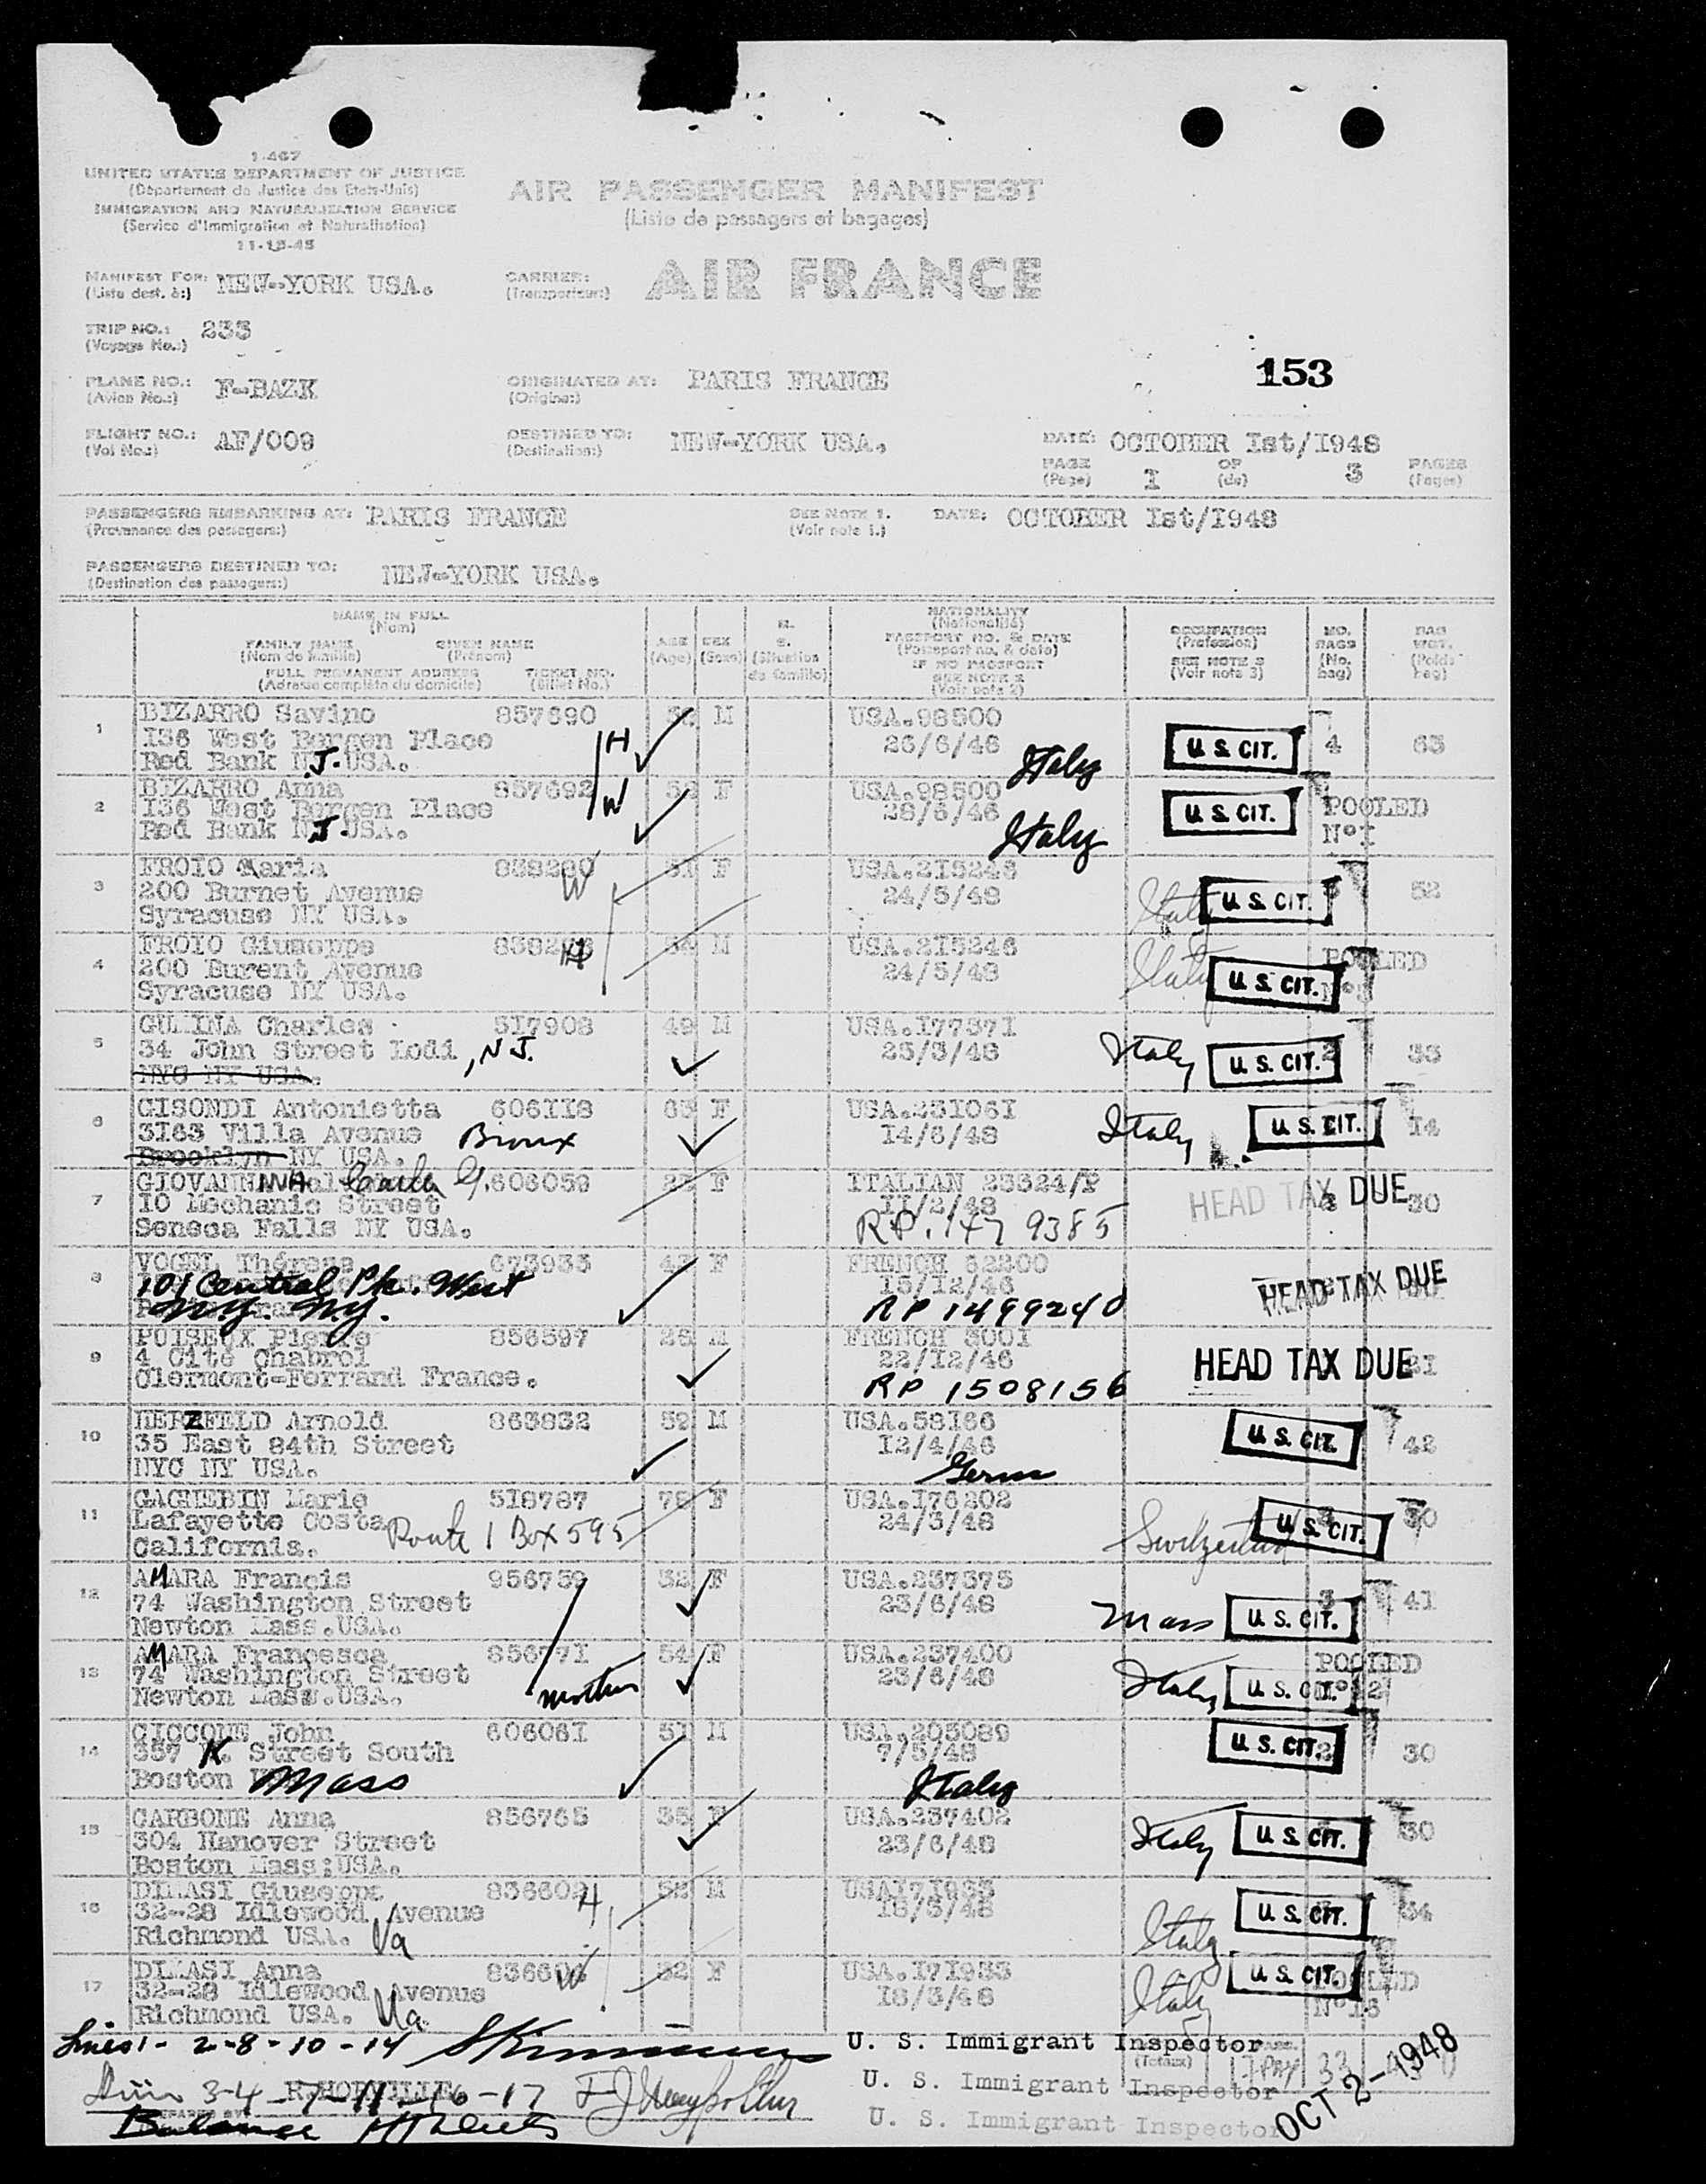 1-467
UNITED STATES DEPARTMENT OF JUSTICE
(Département de Justice des Etats-Unis)
IMMIGRATION AND NATURALIZATION SERVICE
(Service d'Immigration et Naturalisation)
11-15-45
AIR PASSENGER MANIFEST
(Liste de passagers et bagages)
MANIFEST FOR: NEW-YORK USA.
(Liste dest. à:)
CARRIER: AIR FRANCE
(Transporteur:)
TRIP NO.: 233
(Voyage No.:)
153
PLANE NO.: F-BAZK
(Avion No.:)
ORIGINATED AT: PARIS FRANCE
(Origine:)
FLIGHT NO.: AF/009
(Vol No.:)
DESTINED TO: NEW-YORK USA.
(Destination:)
DATE: OCTOBER Ist/I948
PAGE I OF 3 PAGES
(Page) (de) (Pages)
PASSENGERS EMBARKING AT: PARIS FRANCE
(Provenance des passagers:)
SEE NOTE 1.
(Voir note 1.)
DATE: OCTOBER Ist/I948
PASSENGERS DESTINED TO: NEW-YORK USA.
(Destination des passagers:)
NAME IN FULL
(Nom)
FAMILY NAME GIVEN NAME
(Nom de famille) (Prénom)
FULL PERMANENT ADDRESS TICKET NO.
(Adresse complète du domicile) (Billet No.)
AGE
(Age)
SEX
(Sexe)
M.
S.
(Situation de famille)
NATIONALITY
(Nationalité)
PASSPORT NO. & DATE
(Passeport no. & date)
IF NO PASSPORT
SEE NOTE 2
(Voir note 2)
OCCUPATION
(Profession)
SEE NOTE 3
(Voir note 3)
NO. BAGS
(No. bag)
BAG WGT.
(Poids bag)
1 BIZARRO Savino 857690 M USA.98500 U. S. CIT. 4 63
I36 West Bergen Place H 26/6/46
Red Bank N.J. USA. Italy
2 BIZARRO Anna 857692 W F USA.98500 U. S. CIT. POOLED
I36 West Bergen Place 26/6/46 N°I
Red Bank N.J. USA. Italy
3 FROIO Maria W F USA.2I5248 U. S. CIT. 52
200 Burnet Avenue 24/5/48 Italy
Syracuse NY USA.
4 FROIO Giuseppe H M USA.2I5246 POOLED
200 Burent Avenue 24/5/48 Italy U. S. CIT.
Syracuse NY USA.
5 Charles 5I7908 49 M USA.I7737I
34 John Street Lodi, N.J. 25/3/48 Italy U. S. CIT. 2 33
NYC NY USA.
6 CISONDI Antonietta 606II8 63 F USA.23I06I
3I63 Villa Avenue Bronx 14/6/48 Italy U. S. CIT. I4
Brooklyn NY USA.
7 606059 F ITALIAN 23624/P HEAD TAX DUE 30
I0 Mechanic Street II/2/48
Seneca Falls NY USA. RP. 147 9385
8 VOGEL Thérèse 673933 F FRENCH 62200
101 Central Pk. West 15/12/46 HEAD TAX DUE
N.Y. N.Y. RP 1499240
9 POISEUX Pierre 856597 M FRENCH 300I
4 Cité Chabrol 22/I2/46 HEAD TAX DUE 2I
Clermont-Ferrand France. RP 1508156
10 HERZFELD Arnold 863832 52 M USA.58I66 U. S. CIT. 42
35 East 84th Street I2/4/46
NYC NY USA. Germ
11 GAGNEBIN Marie 5I8787 F USA.I76202
Lafayette Costa Route 1 Box 595 24/3/48 Switzerland U. S. CIT. 30
California.
12 AMARA Francis 956759 32 F USA.237375
74 Washington Street 23/6/48 3 41
Newton Mass.USA. Mass U. S. CIT.
13 AMARA Francesca 85677I 54 F USA.237400 POOLED
74 Washington Street 23/6/48 Italy U. S. CIT. N°I2
Newton Mass.USA. mother
14 CICCONE John 60606I 51 M USA.205089 U. S. CIT. 2 30
357 K. Street South 7/5/48
Boston Mass Italy
15 CARBONE Anna 856765 35 F USA.237402
304 Hanover Street 23/6/48 Italy U. S. CIT. 30
Boston Mass;USA.
16 Giuseppe H M USAI7I933 U. S. CIT. 34
32-28 Idlewood Avenue Italy
Richmond USA. Va
17 Anna W F USA.I7I933 U. S. CIT. POOLED
32-28 Idlewood Avenue I8/3/48 Italy N°I6
Richmond USA. Va
Lines 1 - 2-8-10-14 U. S. Immigrant Inspector
(Totaux) 33
U. S. Immigrant Inspector
3-4-7-11-16-17
Balance
U. S. Immigrant Inspector
OCT 2-1948